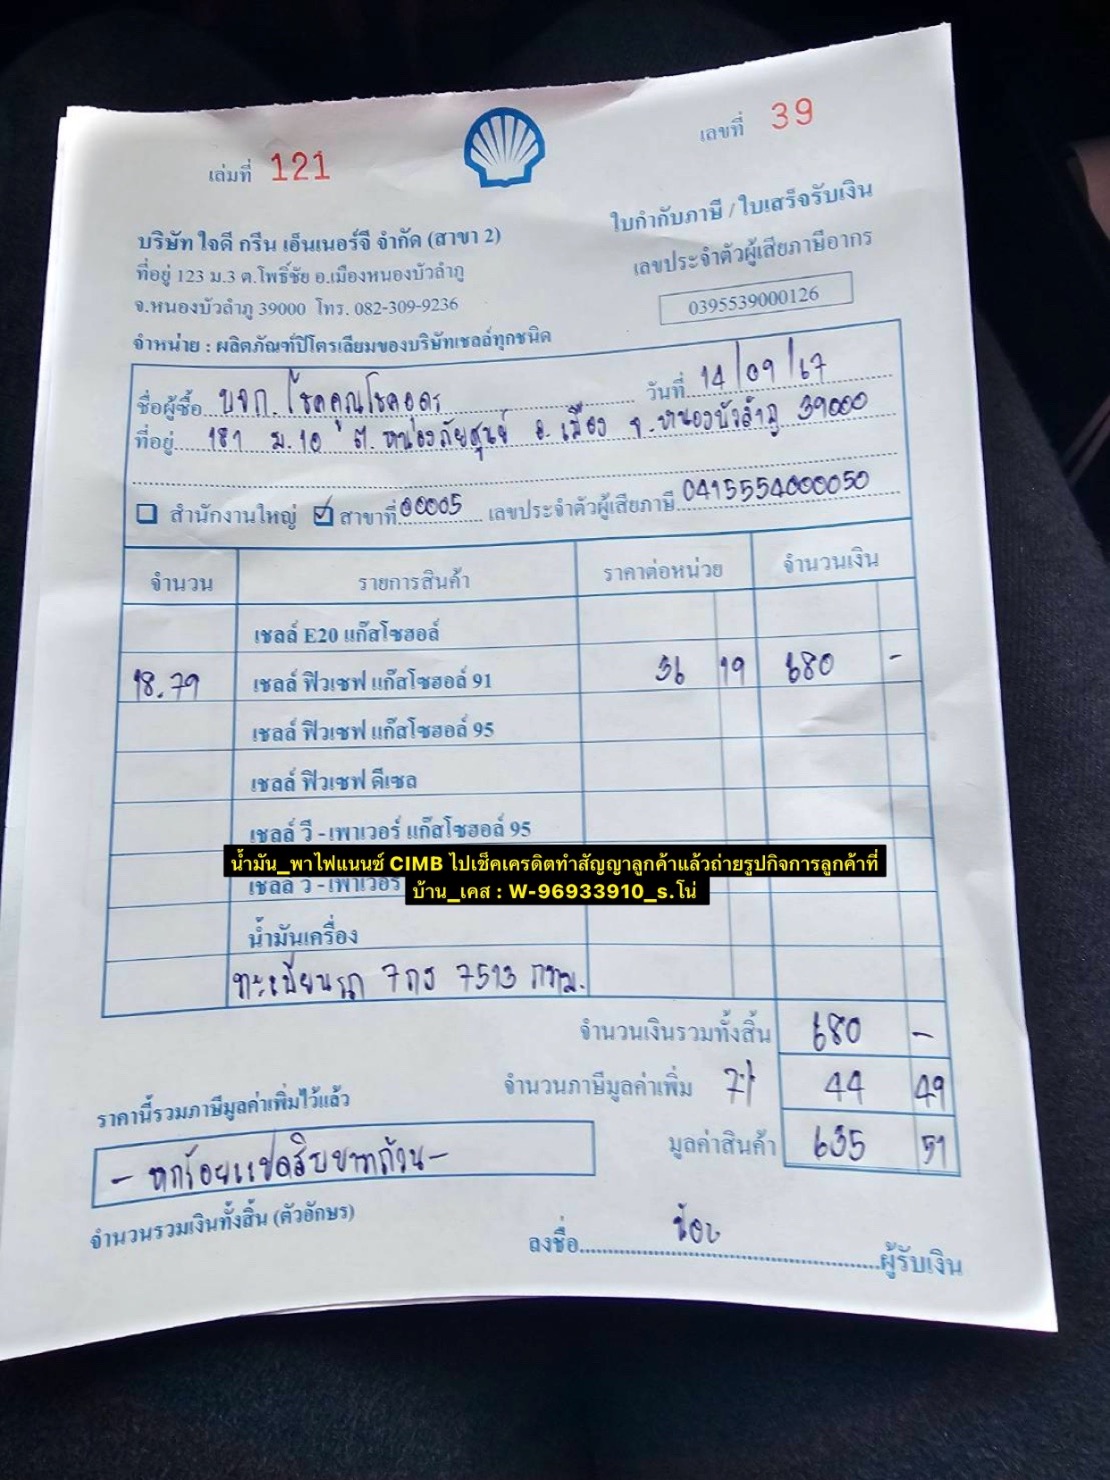 เล่มที่ 121
เลขที่ 39
บริษัท ใจดี กรีน เอ็นเนอร์จี จำกัด (สาขา 2)
ที่อยู่ 123 ม.3 ต.โพธิ์ชัย อ.เมืองหนองบัวลำภู
จ.หนองบัวลำภู 39000 โทร. 082-309-9236
จำหน่าย : ผลิตภัณฑ์ปิโตรเลียมของบริษัทเชลล์ทุกชนิด
ใบกำกับภาษี / ใบเสร็จรับเงิน
เลขประจำตัวผู้เสียภาษีอากร
0395539000126
ชื่อผู้ซื้อ บจก. โชคคูณโชคอุดร วันที่ 14/09/67
ที่อยู่ 181 ม.10 ต.หนองภัยศูนย์ อ.เมือง จ.หนองบัวลำภู 39000
สำนักงานใหญ่ ☑ สาขาที่ 00005 เลขประจำตัวผู้เสียภาษี 0415554000050
จำนวน รายการสินค้า ราคาต่อหน่วย จำนวนเงิน
เชลล์ E20 แก๊สโซฮอล์
18.79 เชลล์ ฟิวเซฟ แก๊สโซฮอล์ 91 36 19 680 -
เชลล์ ฟิวเซฟ แก๊สโซฮอล์ 95
เชลล์ ฟิวเซฟ ดีเซล
เชลล์ วี -เพาเวอร์ แก๊สโซฮอล์ 95
น้ำมัน_พาไฟแนนซ์ CIMB ไปเช็คเครดิตทำสัญญาลูกค้าแล้วถ่ายรูปกิจการลูกค้าที่
บ้าน_เคส : W-96933910_s.โน่
เชลล์ วี -เพาเวอร์
น้ำมันเครื่อง
ทะเบียนรถ 7กง 7513 กทม.
จำนวนเงินรวมทั้งสิ้น 680 -
จำนวนภาษีมูลค่าเพิ่ม 7% 44 49
มูลค่าสินค้า 635 51
ราคานี้รวมภาษีมูลค่าเพิ่มไว้แล้ว
- หกร้อยแปดสิบบาทถ้วน -
จำนวนรวมเงินทั้งสิ้น (ตัวอักษร)
ลงชื่อ ผู้รับเงิน